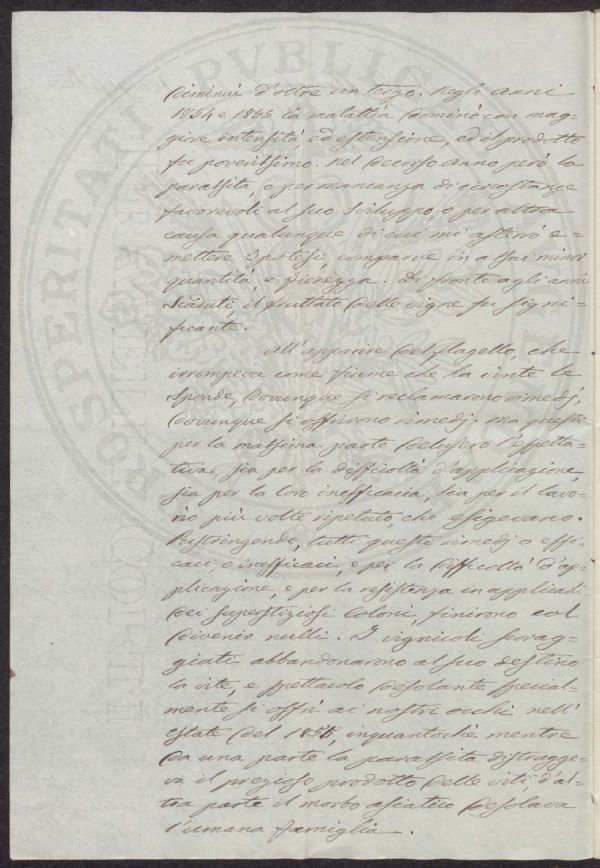 diminuì d'oltre un terzo. Negli anni
1854 e 1855 la malattia dominò con mag=
giore intensità ed estensione, ed il prodotto
fu poverissimo. Nel decorso anno però la
parassita, o per mancanza di circostanze
favorevoli al suo sviluppo, o per altra
causa qualunque, di cui mi asterrò e=
mettere ipotesi comparve in assai minor
quantità e fierezza. Di fronte agli anni
scaduti, il fruttato delle vigne fu signi=
ficante.
All'apparire del flagello, che
irrompeva come fiume che ha vinto le
sponde, dovunque si reclamarono rimedj,
dovunque si offrirono rimedj. Ma questi
per la massima parte delusero l'aspetta=
tiva. Sia per la difficoltà d'applicazione,
sia per la loro inefficacia, sia per il lavo=
rio più volte ripetuto che esigevano.
Restringendo, tutti questi rimedj o effi=
caci, o inefficaci, e per la difficoltà d'ap=
plicazione, e per la resistenza in applicarli
dei superstiziosi coloni, finirono col
divenir nulli. I vignicoli scorag=
giati abbandonarono al suo destino
la vite, e spettacolo desolante special=
mente si offrì ai nostri occhi nell'
estate del 1855, inquantochè mentre
da una parte la parassita distrugge=
va il prezioso prodotto delle viti, d'al=
tra parte il morbo asiatico desolava
l'umana famiglia.
PROSPERITATI PVBLIC